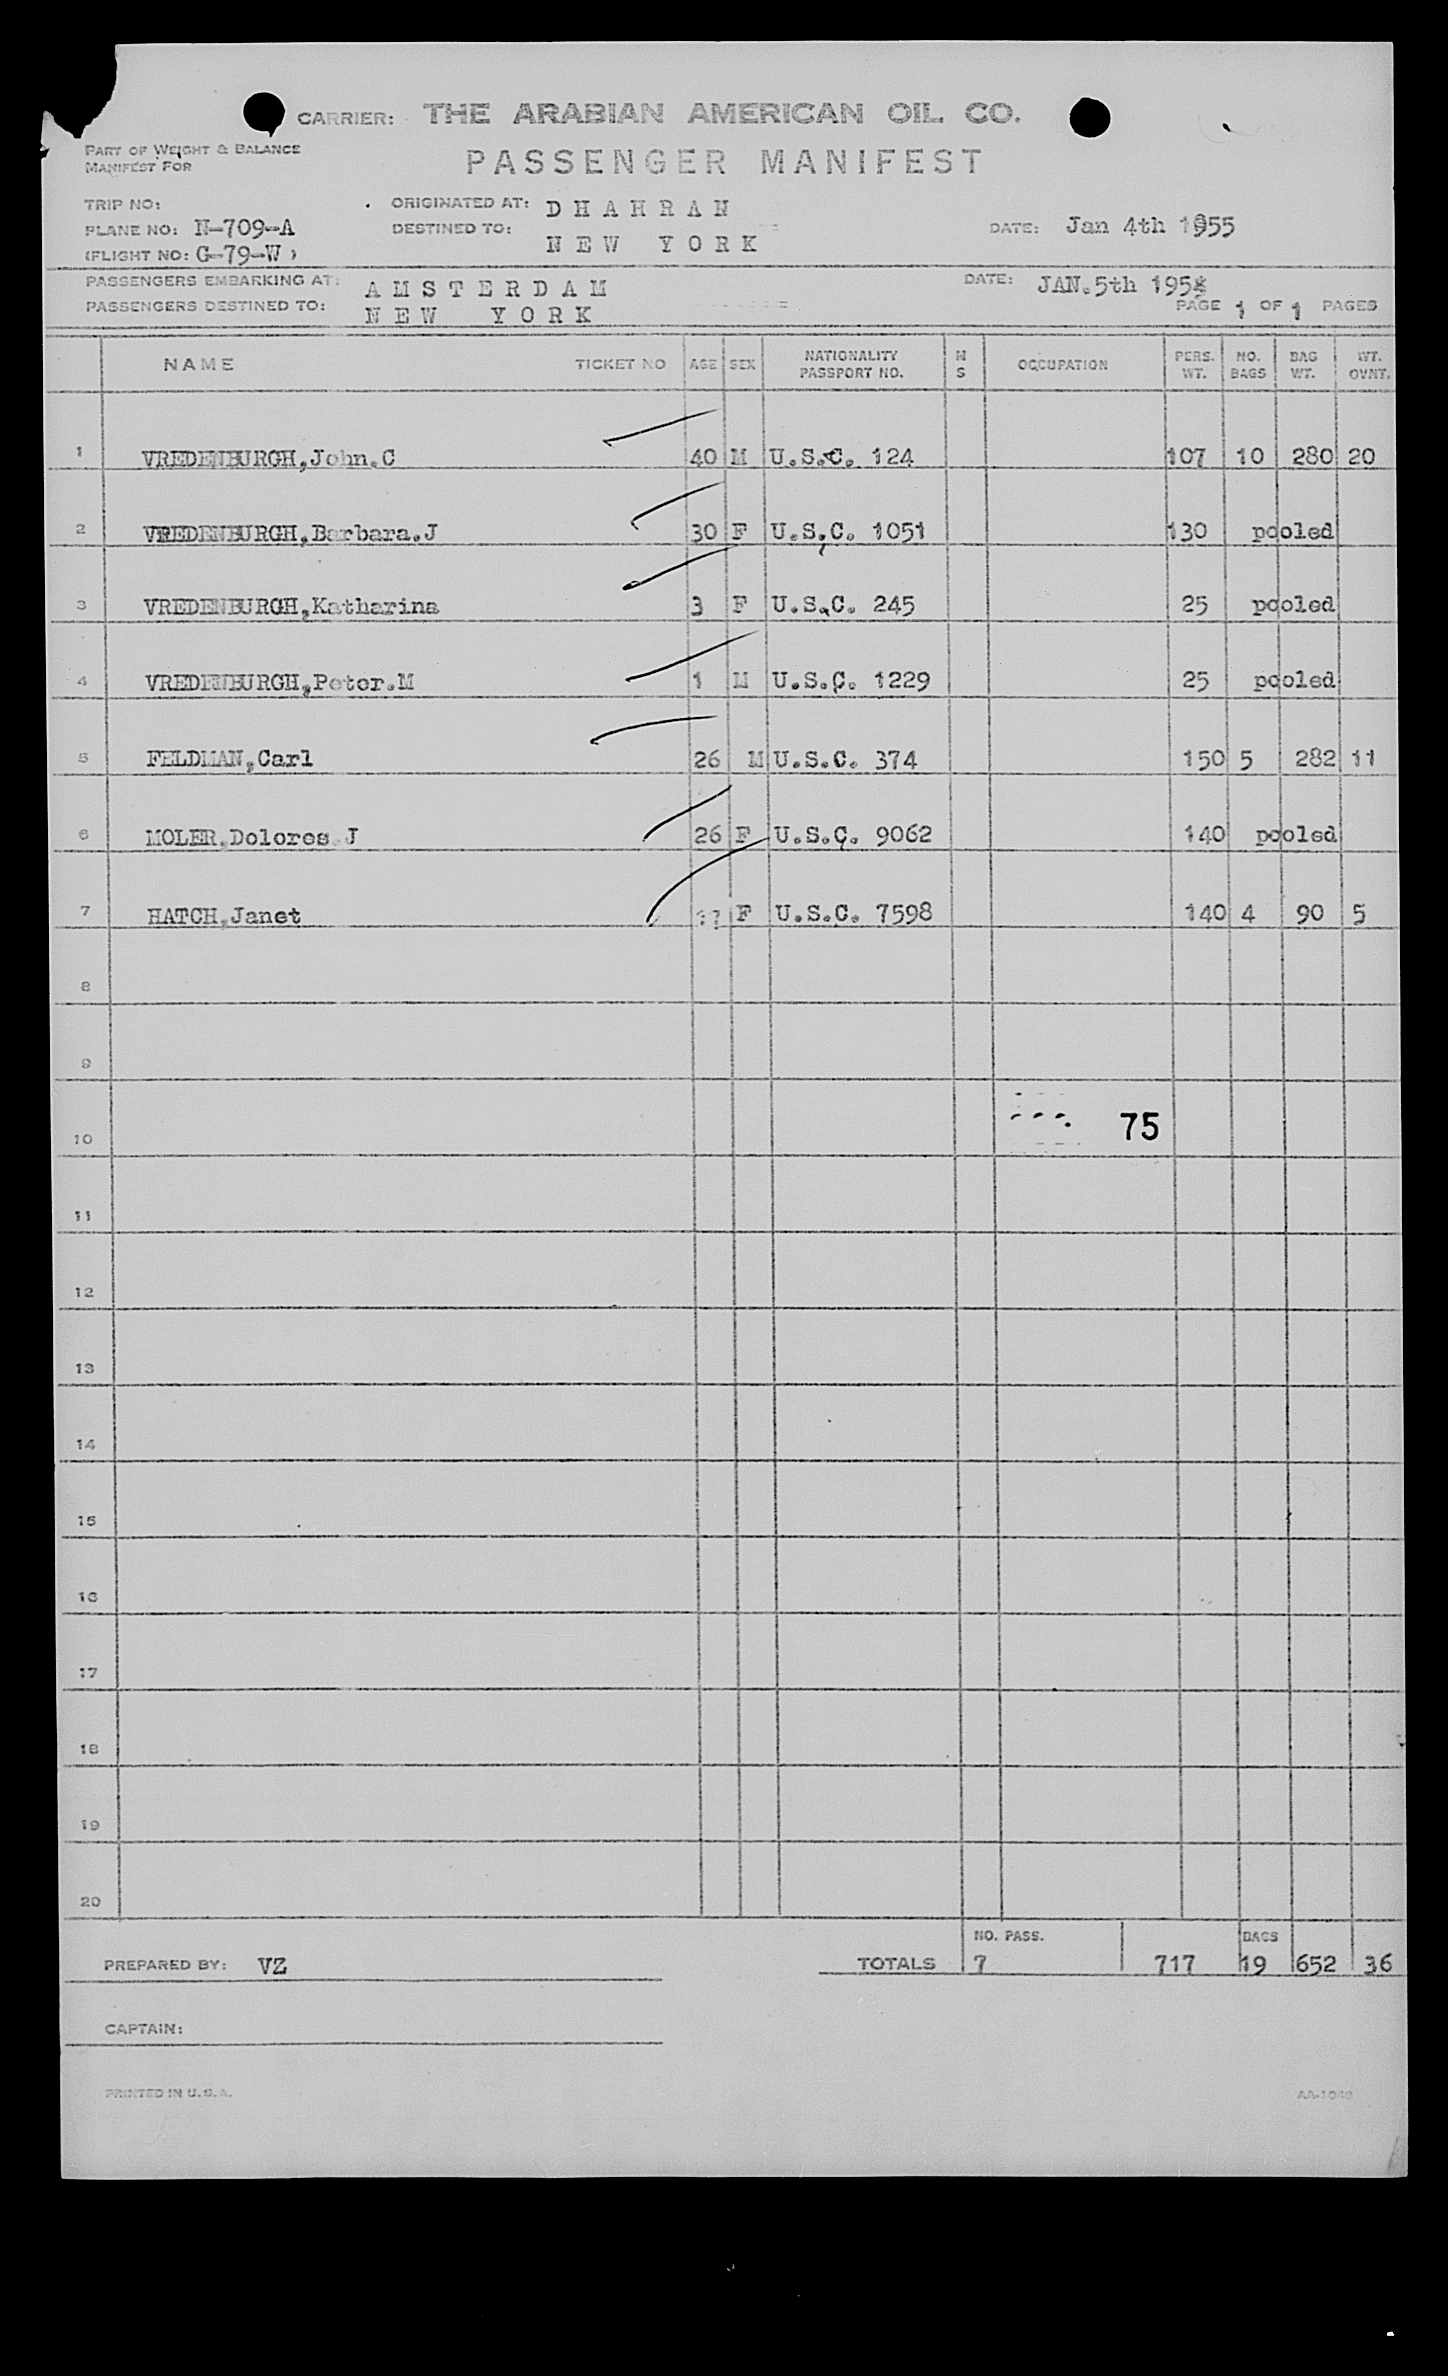 CARRIER: THE ARABIAN AMERICAN OIL CO.
PART OF WEIGHT & BALANCE
MANIFEST FOR
PASSENGER MANIFEST
TRIP NO:
ORIGINATED AT: DHAHRAN
PLANE NO: N-709-A
DESTINED TO: NEW YORK
DATE: Jan 4th 1955
(FLIGHT NO: G-79-W)
PASSENGERS EMBARKING AT: AMSTERDAM
DATE: JAN.5th
PASSENGERS DESTINED TO: NEW YORK
PAGE 1 OF 1 PAGES
NAME TICKET NO AGE SEX NATIONALITY PASSPORT NO. M S OCCUPATION PERS. WT. NO. BAGS BAG WT. WT. OVNT.
1 VREDENBURGH,John.C 40 M U.S.C. 124 107 10 280 20
2 VREDENBURGH,Barbara.J 30 F U.S.C. 1051 130 pooled
3 VREDENBURGH,Katharina 3 F U.S.C. 245 25 pooled
4 VREDENBURGH,Peter.M 1 M U.S.C. 1229 25 pooled
5 FELDMAN,Carl 26 M U.S.C. 374 150 5 282 11
6 MOLER,Dolores J 26 F U.S.C. 9062 140 pooled
7 HATCH,Janet F U.S.C. 7598 140 4 90 5
8
9
10 75
11
12
13
14
15
16
17
18
19
20
NO. PASS. BAGS
PREPARED BY: VZ TOTALS 7 717 19 652 36
CAPTAIN:
PRINTED IN U.S.A.